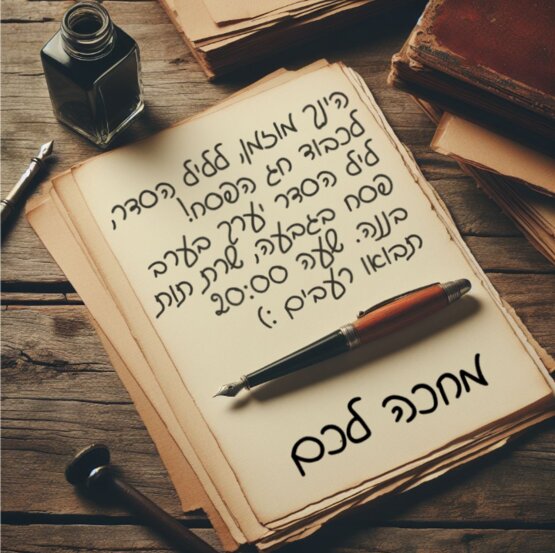 הינך מוזמן, ללילל הסדר,
לכבוד חג הפסח!
ליל הסדר יערך בערב
פסח בגבעה, שרת תות
בננה. שעה 20:00
תבואו רעבים :)
מחכה לכם